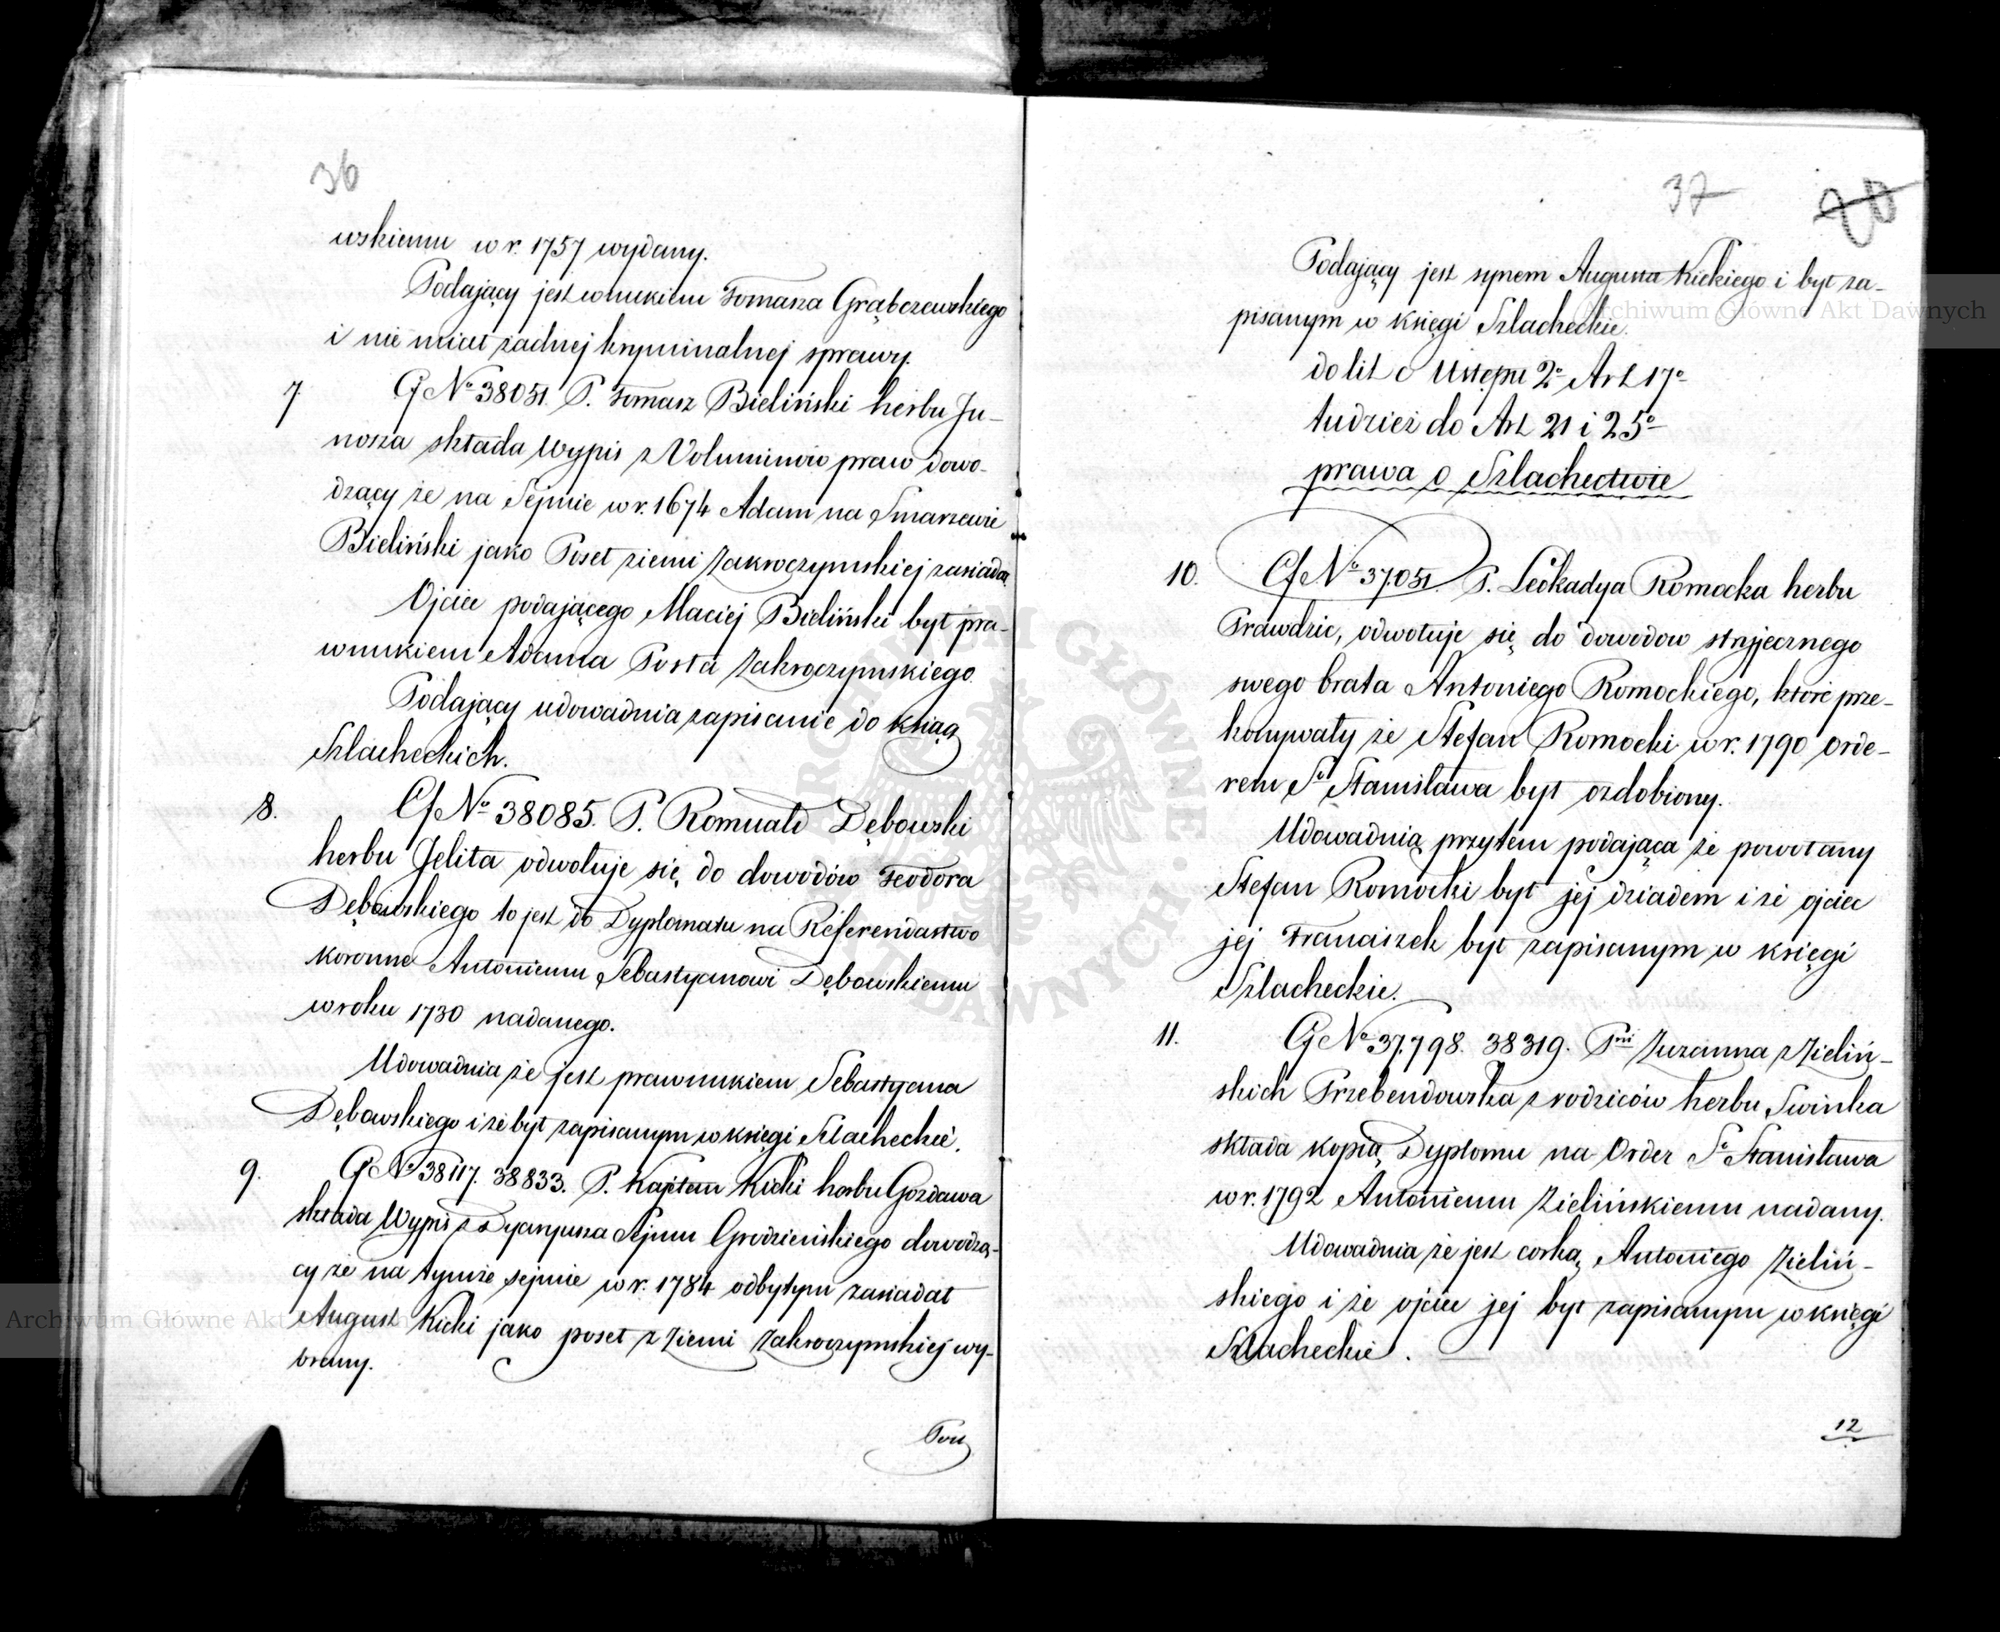 36
wskiemu w r. 1757 wydany.
Podający jest wnukiem Tomasza Grąbczewskiego
i nie miał żadnej kryminalnej sprawy.
7. Cf No 38051. P. Tomasz Bieliński herbu Ju-
nosza składa Wypis z Voluminów praw dowo-
dzący że na Sejmie w r. 1674 Adam na Smarzewie
Bieliński jako Poseł ziemi Zakroczymskiej zasiadał
Ojciec podającego Maciej Bieliński był pra-
wnukiem Adama Posła Zakroczymskiego.
Podający udowadnia zapisanie do ksiąg
Szlacheckich.
8. Cf No 38085. P. Romuald Dębowski
herbu Jelita odwołuje się do dowodów Teodora
Dębowskiego to jest do Dyplomatu na Referendarstwo
koronne Antoniemu Sebastyanowi Dębowskiemu
w roku 1730 nadanego.
Udowadnia że jest prawnukiem Sebastyana
Dębowskiego i że był zapisanym w księgi Szlacheckie.
9. Cf No 38117. 38833. P. Kajetan Kicki herbu Gozdawa
składa Wypis z Dyaryusza Sejmu Grodzieńskiego dowodzą-
cy że na tymże sejmie w r. 1784 odbytym zasiadał
August Kicki jako poseł z Ziemi Zakroczymskiej wy-
brany.
37
Podający jest synem Augusta Kickiego i był za-
pisanym w księgi Szlacheckie.
do lit c Ustępu 2o Art 17o
tudzież do Art 21 i 25o
prawa o Szlachectwie
10. Cf No 37.051. P. Leokadya Romocka herbu
Prawdzic, odwołuje się do dowodow stryjecznego
swego brata Antoniego Romockiego, które prze-
konywały że Stefan Romocki w r. 1790 Orde-
rem So Stanisława był ozdobiony.
Udowadnia przytem podająca że powołany
Stefan Romocki był jej dziadem i że ojciec
jej Franciszek był zapisanym w księgi
Szlacheckie.
11. Cf No 37.798. 38319. Pni Zuzanna z Zieliń-
skich Przebendowska z rodziców herbu Swinka
składa kopią Dyplomu na Order So Stanisława
w r. 1792 Antoniemu Zielińskiemu nadany.
Udowadnia że jest corką Antoniego Zieliń-
skiego i że ojciec jej był zapisanym w księgi
Szlacheckie.
12
Archiwum Główne Akt Dawnych
Archiwum Główne Akt
ARCHIWUM GŁÓWNE AKT DAWNYCH